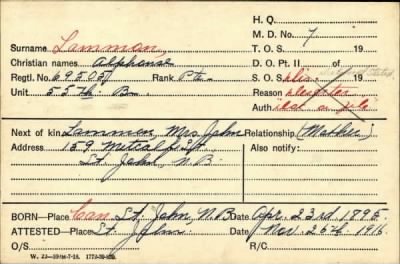 H. Q.
M. D. No. 7
Surname Lamman,
T. O. S. 19
Christian names Alphonse
D. O. Pt. II of 19
Regtl. No. 69505 Rank Pte.
S. O. S. 19
Unit 55th. B.
Reason
Auth.
Next of kin Lamman, Mrs John Relationship (Mother)
Address 159 Metcalf St. Also notify:
St. John, N.B.
BORN—Place Can. St. John, N.B. Date Apr. 23rd 1895.
ATTESTED—Place St. John. Date Nov. 26th. 1916.
O/S R/C